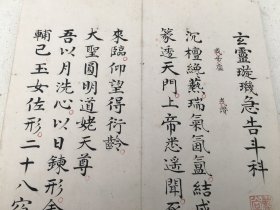 玄靈璇璣急告斗科
沉檀纔爇瑞氣氤氳結成
篆透天門上帝悉遙聞至
來臨仰望得衍齡
大聖圓明道姥天尊
吾以月洗心以日鍊形舍
輔己玉女佐形二十八宿